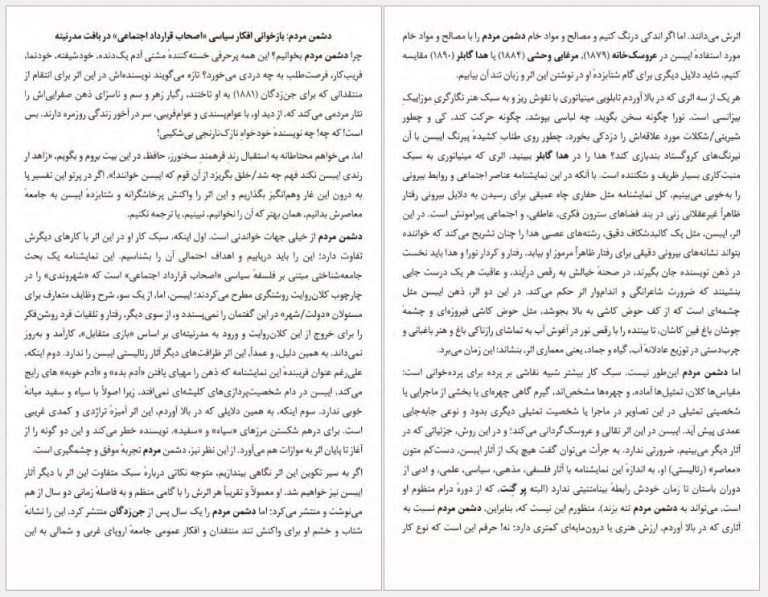 دشمن مردم: بازخوانی افکار سیاسی «اصحاب قرارداد اجتماعی» در بافت مدرنیته
چرا دشمن مردم بخوانیم؟ این همه پرحرفی خسته‌کنندهٔ مشتی آدم یک‌دنده، خودشیفته، خودنما،
فریب‌کار، فرصت‌طلب به چه دردی می‌خورد؟ تازه می‌گویند نویسنده‌اش در این اثر برای انتقام از
منتقدانی که برای جن‌زدگان (۱۸۸۱) به او تاختند، رگبار زهر و سم و ناسزای ذهن صفرایی‌اش را
نثار مردمی می‌کند که، از دید او، با عوام‌پسندی و عوام‌فریبی، سر در آخور زندگی روزمره دارند. بس
است! که چه! چه نویسندهٔ خودخواهِ نازک‌نارنجی بی‌شکیبی!
اما، می‌خواهم محتاطانه به استقبال رندِ فرهمندِ سخنور، حافظ، در این بیت بروم و بگویم، «زاهد ار
رندی ایبسن نکند فهم چه شد/خلق بگریزد از آن قوم که ایبسن خوانند!». اگر در پرتو این تفسیر پا
به درون این غار وهم‌انگیز بگذاریم و این اثر را واکنش پرخاشگرانه و شتابزدهٔ ایبسن به جامعه
معاصرش بدانیم، همان بهتر که آن را نخوانیم، نبینیم، یا ترجمه نکنیم.
دشمن مردم از خیلی جهات خواندنی است. اول اینکه، سبک کار او در این اثر با کارهای دیگرش
تفاوت دارد؛ این را باید دریابیم و اهداف احتمالی آن را بشناسیم. این نمایشنامه یک بحث
جامعه‌شناختی مبتنی بر فلسفهٔ سیاسی «اصحاب قرارداد اجتماعی» است که «شهروندی» را در
چارچوب کلان‌روایت روشنگری مطرح می‌کردند؛ ایبسن، اما، از یک سو، شرح وظایف متعارف برای
مسئولان «دولت/شهر» در این گفتمان را نمی‌پسندد و، از سوی دیگر، رفتار و تلقیات فرد روشن‌فکر
را برای خروج از این کلان‌روایت و ورود به مدرنیته‌ای بر اساس «بازی متقابل»، کارآمد و به‌روز
نمی‌داند. به همین دلیل، و عمداً، این اثر ظرافت‌های دیگر آثار رئالیستی ایبسن را ندارد. دوم اینکه،
علی‌رغم عنوان فریبندهٔ این نمایشنامه که ذهن را مهیای یافتن «آدم بده» و «آدم خوبه» های رایج
می‌کند، ایبسن در دام شخصیت‌پردازی‌های کلیشه‌ای نمی‌افتد، زیرا اصولاً با سیاه و سفید میانهٔ
خوبی ندارد. سوم اینکه، به همین دلایلی که در بالا آوردم، این اثر آمیزهٔ تراژدی و کمدی غریبی
است. برای درهم شکستن مرزهای «سیاه» و «سفید»، نویسنده خطر می‌کند و این دو گونه را از
آغاز تا پایان اثر به موازات هم می‌آورد. از این نظر نیز، دشمن مردم تجربهٔ موفق و چشمگیری است.
اگر به سیر تکوین این اثر نگاهی بیندازیم، متوجه نکاتی دربارهٔ سبک متفاوت این اثر با دیگر آثار
ایبسن نیز خواهیم شد. او معمولاً و تقریباً هر اثرش را با گامی منظم و به فاصلهٔ زمانی دو سال از هم
می‌نوشت و منتشر می‌کرد؛ اما دشمن مردم را یک سال پس از جن‌زدگان منتشر کرد. این را نشانهٔ
شتاب و خشم او برای واکنش تند منتقدان و افکار عمومی جامعهٔ اروپای غربی و شمالی به این
اثرش می‌دانند. اما اگر اندکی درنگ کنیم و مصالح و مواد خام دشمن مردم را با مصالح و مواد خام
مورد استفادهٔ ایبسن در عروسک‌خانه (۱۸۷۹)، مرغابی وحشی (۱۸۸۴) یا هدا گابلر (۱۸۹۰) مقایسه
کنیم، شاید دلایل دیگری برای گام شتابزدهٔ او در نوشتن این اثر و زبان تند آن بیابیم.
هر یک از سه اثری که در بالا آوردم تابلویی مینیاتوری با نقوش ریز و به سبک هنر نگارگریِ موزاییک
بیزانسی است. نورا چگونه سخن بگوید، چه لباسی بپوشد، چگونه حرکت کند، کی و چطور
شیرینی/شکلات مورد علاقه‌اش را دزدکی بخورد، چطور روی طناب کشیدهٔ پیرنگ ایبسن با آن
نیرنگ‌های کروگستاد بندبازی کند؟ هدا را در هدا گابلر ببینید، اثری که مینیاتوری به سبک
منبت‌کاری بسیار ظریف و شکننده است. با آنکه در این نمایشنامه عناصر اجتماعی و روابط بیرونی
را به‌خوبی می‌بینیم، کل نمایشنامه مثل حفاری چاه عمیقی برای رسیدن به دلایل بیرونی رفتار
ظاهراً غیرعقلانی زنی در بند فضاهای سترون فکری، عاطفی، و اجتماعی پیرامونش است. در این
اثر، ایبسن، مثل یک کالبدشکاف دقیق، رشته‌های عصبی هدا را چنان تشریح می‌کند که خواننده
بتواند نشانه‌های بیرونی دقیقی برای رفتار ظاهراً مرموز او بیابد. رفتار و کردار نورا و هدا باید نخست
در ذهن نویسنده جان بگیرند، در صحنهٔ خیالش به رقص درآیند، و عاقبت هر یک درست جایی
بنشینند که ضرورت شاعرانگی و اندام‌وار اثر حکم می‌کند. در این دو اثر، ذهن ایبسن مثل
چشمه‌ای است که از کف حوض کاشی به بالا بجوشد، مثل حوض کاشی فیروزه‌ای و چشمهٔ
جوشان باغ فینِ کاشان، تا بیننده را با رقص نور در آغوش آب به تماشای رازناکی باغ و هنر باغبانی و
چرب‌دستی در توزیع عادلانهٔ آب، گیاه و جماد، یعنی معماری اثر، بنشاند؛ این زمان می‌برد.
اما دشمن مردم این‌طور نیست. سبک کار بیشتر شبیه نقاشی بر پرده برای پرده‌خوانی است:
مقیاس‌ها کلان، تمثیل‌ها آماده، و چهره‌ها مشخص‌اند، گیرم گاهی چهره‌ای یا بخشی از ماجرایی یا
شخصیتی تمثیلی در این تصاویر در ماجرا یا شخصیت تمثیلی دیگری بدود و نوعی جابه‌جایی
عمدی پیش آید. ایبسن در این اثر نقالی و عروسک‌گردانی می‌کند؛ و در این روش، جزئیاتی که در
آثار دیگر می‌بینیم، ضرورتی ندارد. به جرأت می‌توان گفت هیچ یک از آثار ایبسن، دست‌کم متون
«معاصر» (رئالیستی) او، به اندازهٔ این نمایشنامه با آثار فلسفی، مذهبی، سیاسی، علمی، و ادبی از
دوران باستان تا زمان خودش رابطهٔ بینامتنیتی ندارد (البته پِر گنت، که از دورهٔ درام منظوم او
است، می‌تواند به دشمن مردم تنه بزند). منظورم این نیست که، بنابراین، دشمن مردم نسبت به
آثاری که در بالا آوردم، ارزش هنری یا درون‌مایه‌ای کمتری دارد؛ نه! حرفم این است که نوع کار